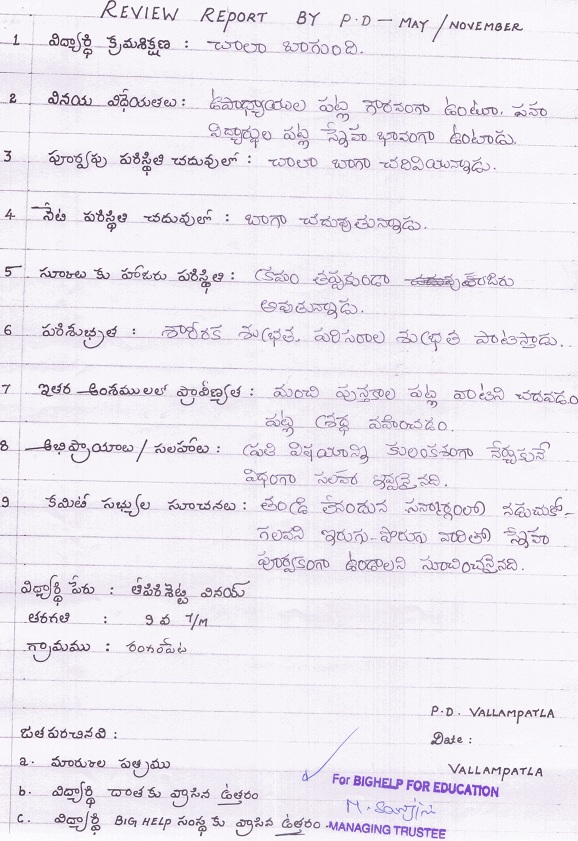 REVIEW REPORT BY P.D - MAY / NOVEMBER
1 విద్యార్థి క్రమశిక్షణ : చాలా బాగుంది.
2 వినయ విధేయతలు: ఉపాధ్యాయుల పట్ల గౌరవంగా ఉంటూ, సహ
విద్యార్థుల పట్ల స్నేహ భావంగా ఉంటాడు.
3 పూర్వపు పరిస్థితి చదువులో : చాలా బాగా చదివియున్నాడు.
4 నేటి పరిస్థితి చదువులో : బాగా చదువుతున్నాడు.
5 స్కూలు కు హాజరు పరిస్థితి : క్రమం తప్పకుండా హాజరు
అవుతున్నాడు.
6 పరిశుభ్రత : శారీరక శుభ్రత, పరిసరాల శుభ్రత పాటిస్తాడు.
7 ఇతర అంశములలో ప్రావీణ్యత : మంచి పుస్తకాల పట్ల వాటిని చదవడం
పట్ల శ్రద్ధ వహించడం.
8 అభిప్రాయాలు / సలహాలు : ప్రతి విషయాన్ని కులంకశంగా నేర్చుకునే
విధంగా సలహా ఇవ్వనైనది.
9 కమిటీ సభ్యుల సూచనలు : తండ్రి లేనందున సన్మార్గంలో నడుచుకో-
గలవని ఇరుగు-పొరుగు వారితో స్నేహ
పూర్వకంగా ఉండాలని సూచించనైనది.
విద్యార్థి పేరు : తిపిరిశెట్టి వినయ్
తరగతి : 9 వ T/M
గ్రామము : రంగంపేట
P.D. VALLAMPATLA
Date :
VALLAMPATLA
జతపరచినవి :
a. మార్కుల పత్రము
b. విద్యార్థి దాతకు వ్రాసిన ఉత్తరం
c. విద్యార్థి BIG HELP సంస్థ కు వ్రాసిన ఉత్తరం.
For BIGHELP FOR EDUCATION
MANAGING TRUSTEE